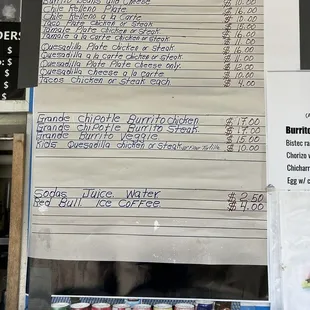 Burrito Beans and cheese $ 10.00
Chile Relleno Plate
Chile Relleno a la Carte $ 10.00
Taco Plate Chicken or Steak $ 15.00
Tamale Plate Chicken or Steak $ 16.00
Tamale a la Carte Chicken or Steak $ 11.00
Quesadilla Plate Chicken or Steak $ 16.00
Quesadilla a la Carte Chicken or Steak $ 11.00
Quesadilla Plate Plate Cheese only $
Quesadilla Cheese a la Carte $ 10.00
Tacos Chicken or Steak each $ 4.00
Grande Chipotle Burrito chicken $ 17.00
Grande Chipotle Burrito Steak $ 17.00
Grande Burrito Veggie $ 15.00
Kids Quesadilla chicken or Steak $ 10.00
Sodas Juice Water $ 2.50
Red Bull Ice Coffee $ 4.00
DERS
$
$
$
$
Burrito
Bistec ra
Chorizo
Chichar
Egg w/ c